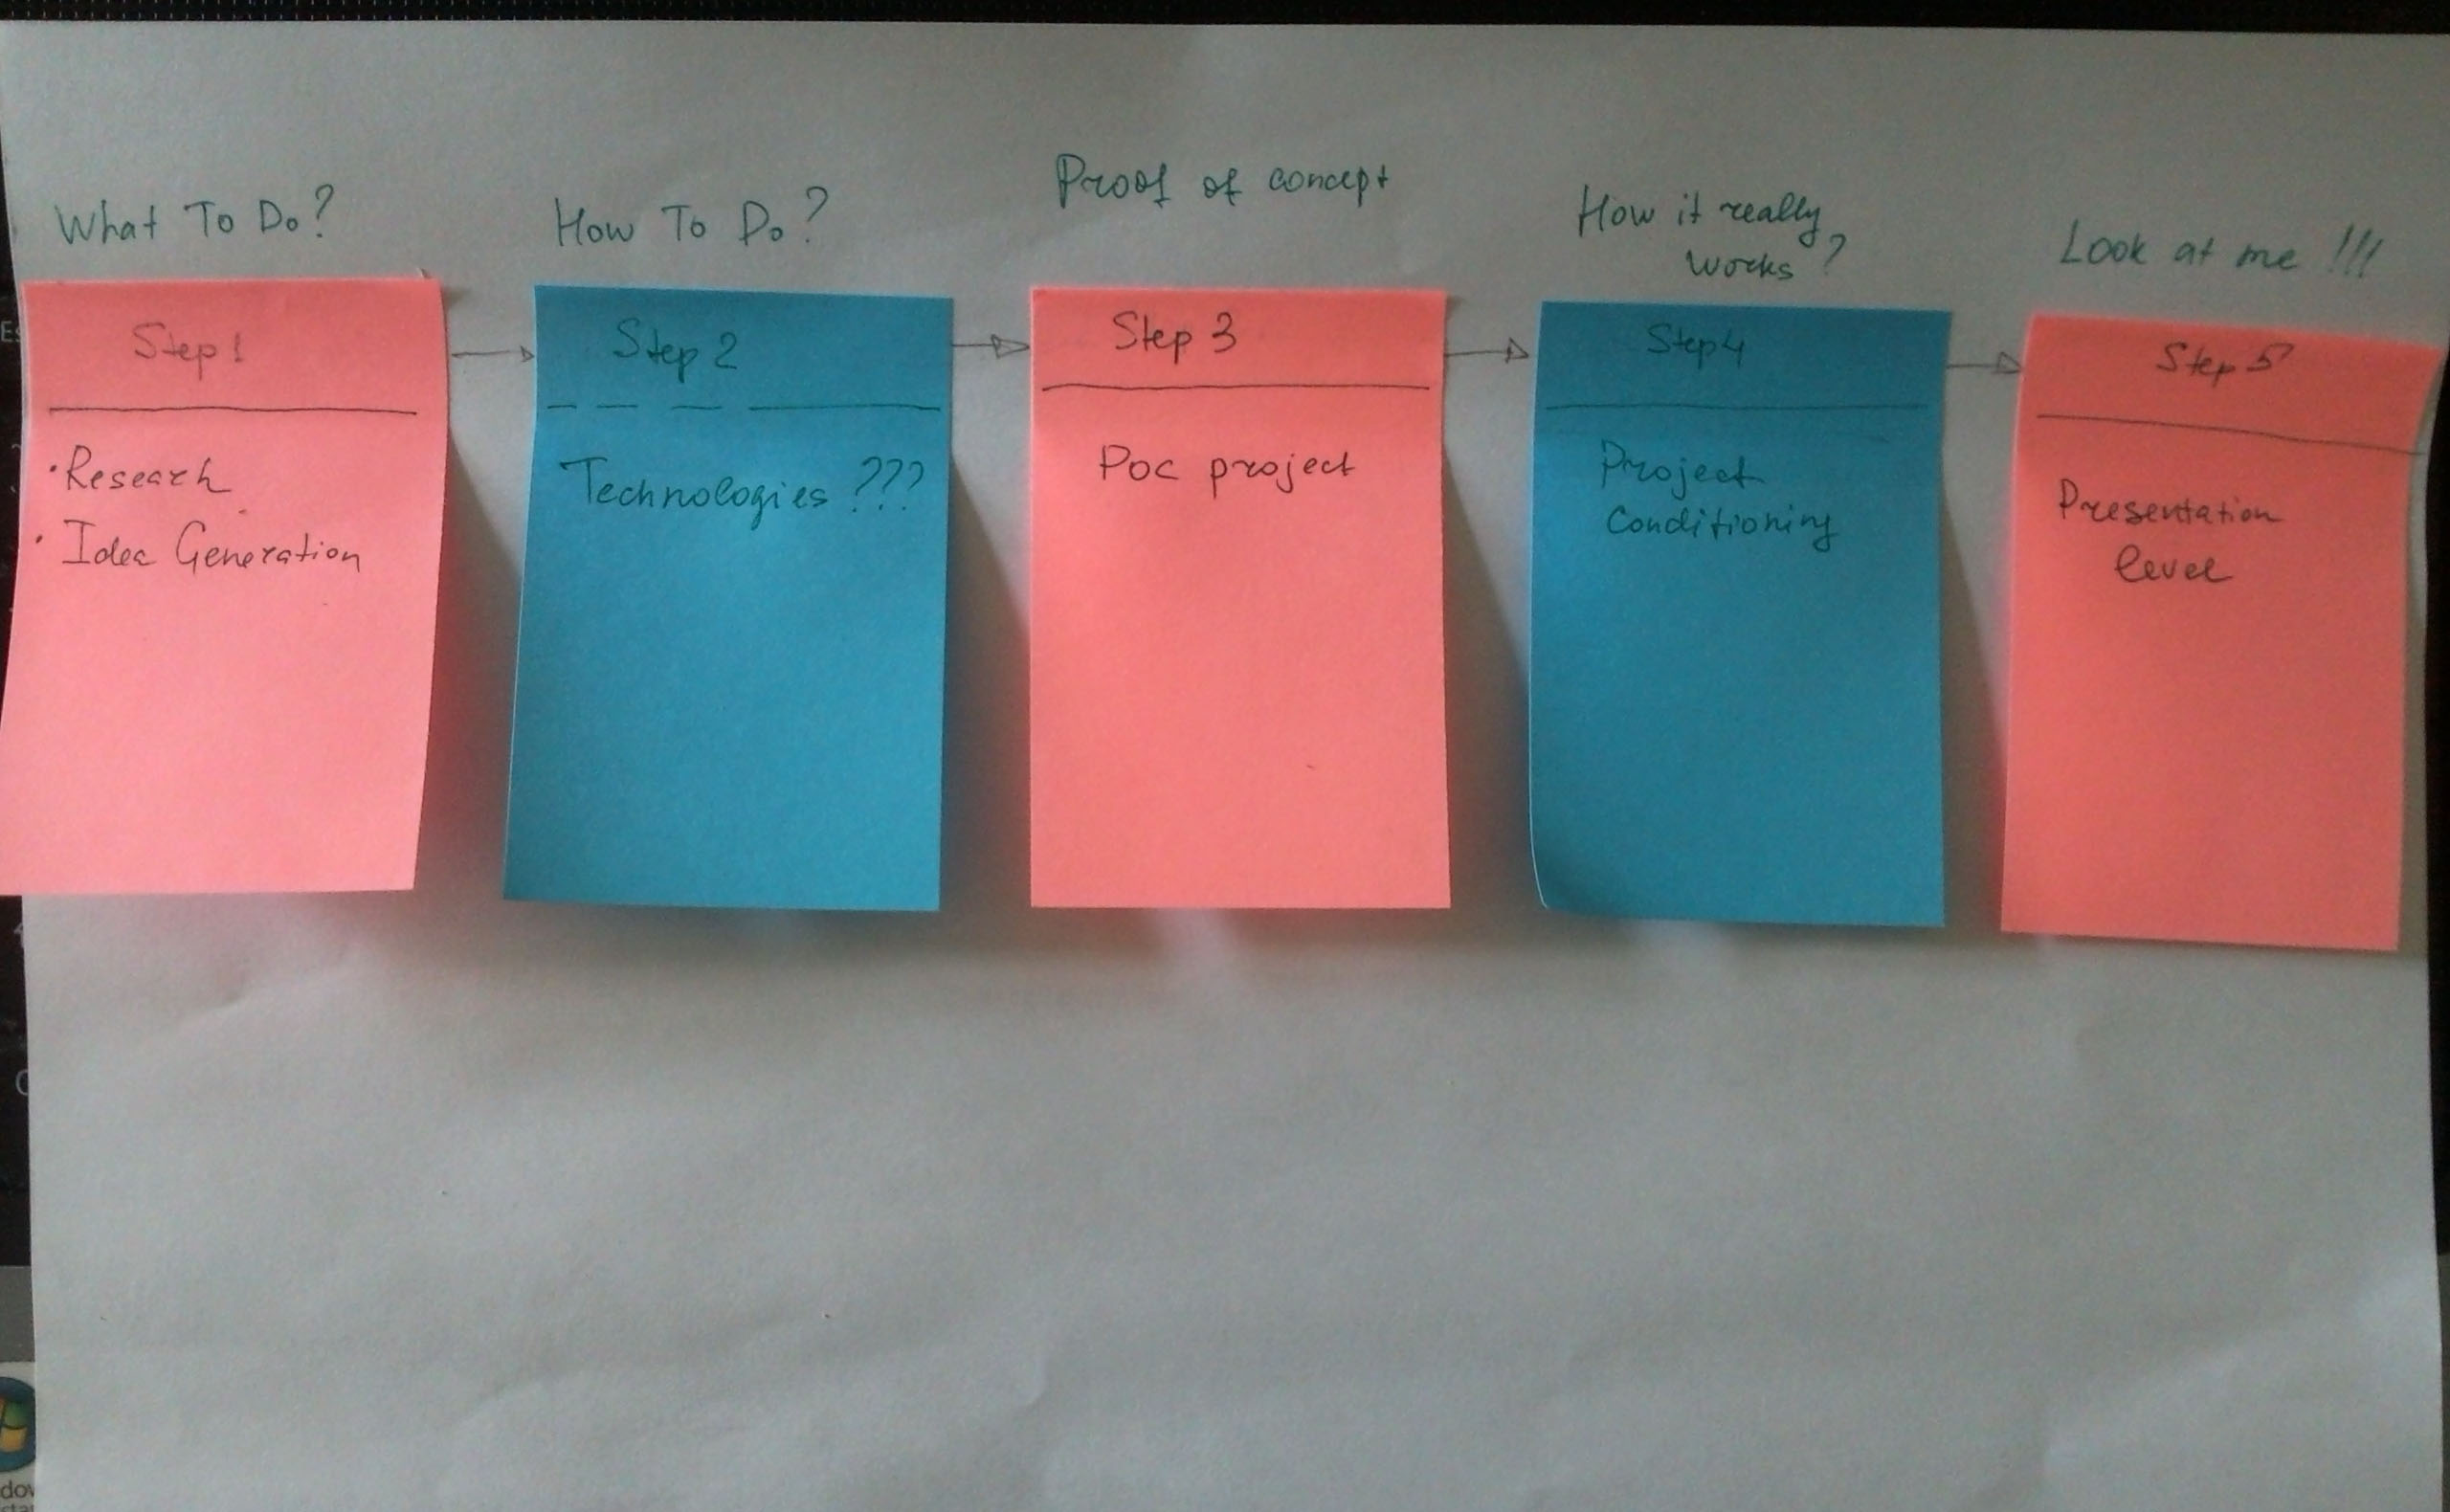 What To Do?
Step 1
· Research
· Idea Generation
How To Do?
Step 2
Technologies ???
Proof of concept
Step 3
Poc project
How it really
works?
Step 4
Project
Conditioning
Look at me !!!
Step 5
Presentation
level